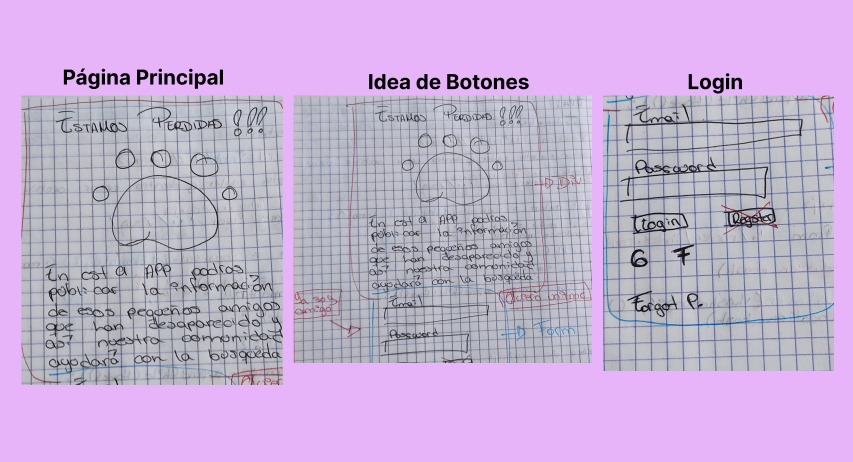 Página Principal
ESTAMOS PERDIDAS !!!
En est a APP podras
publicar la información
de esos pequeños amigos
que han desaparecido y
así nuestra comunidad
ayudará con la búsqueda
Idea de Botones
ESTAMOS PERDIDAS !!!
En est a APP podras
publicar la información
de esos pequeños amigos
que han desaparecido y
así nuestra comunidad
ayudará con la búsqueda
Ya soy
amigo
Quiero unirme
Email
Password
Form
Login
Email
Password
Login
Register
G F
Forgot P.